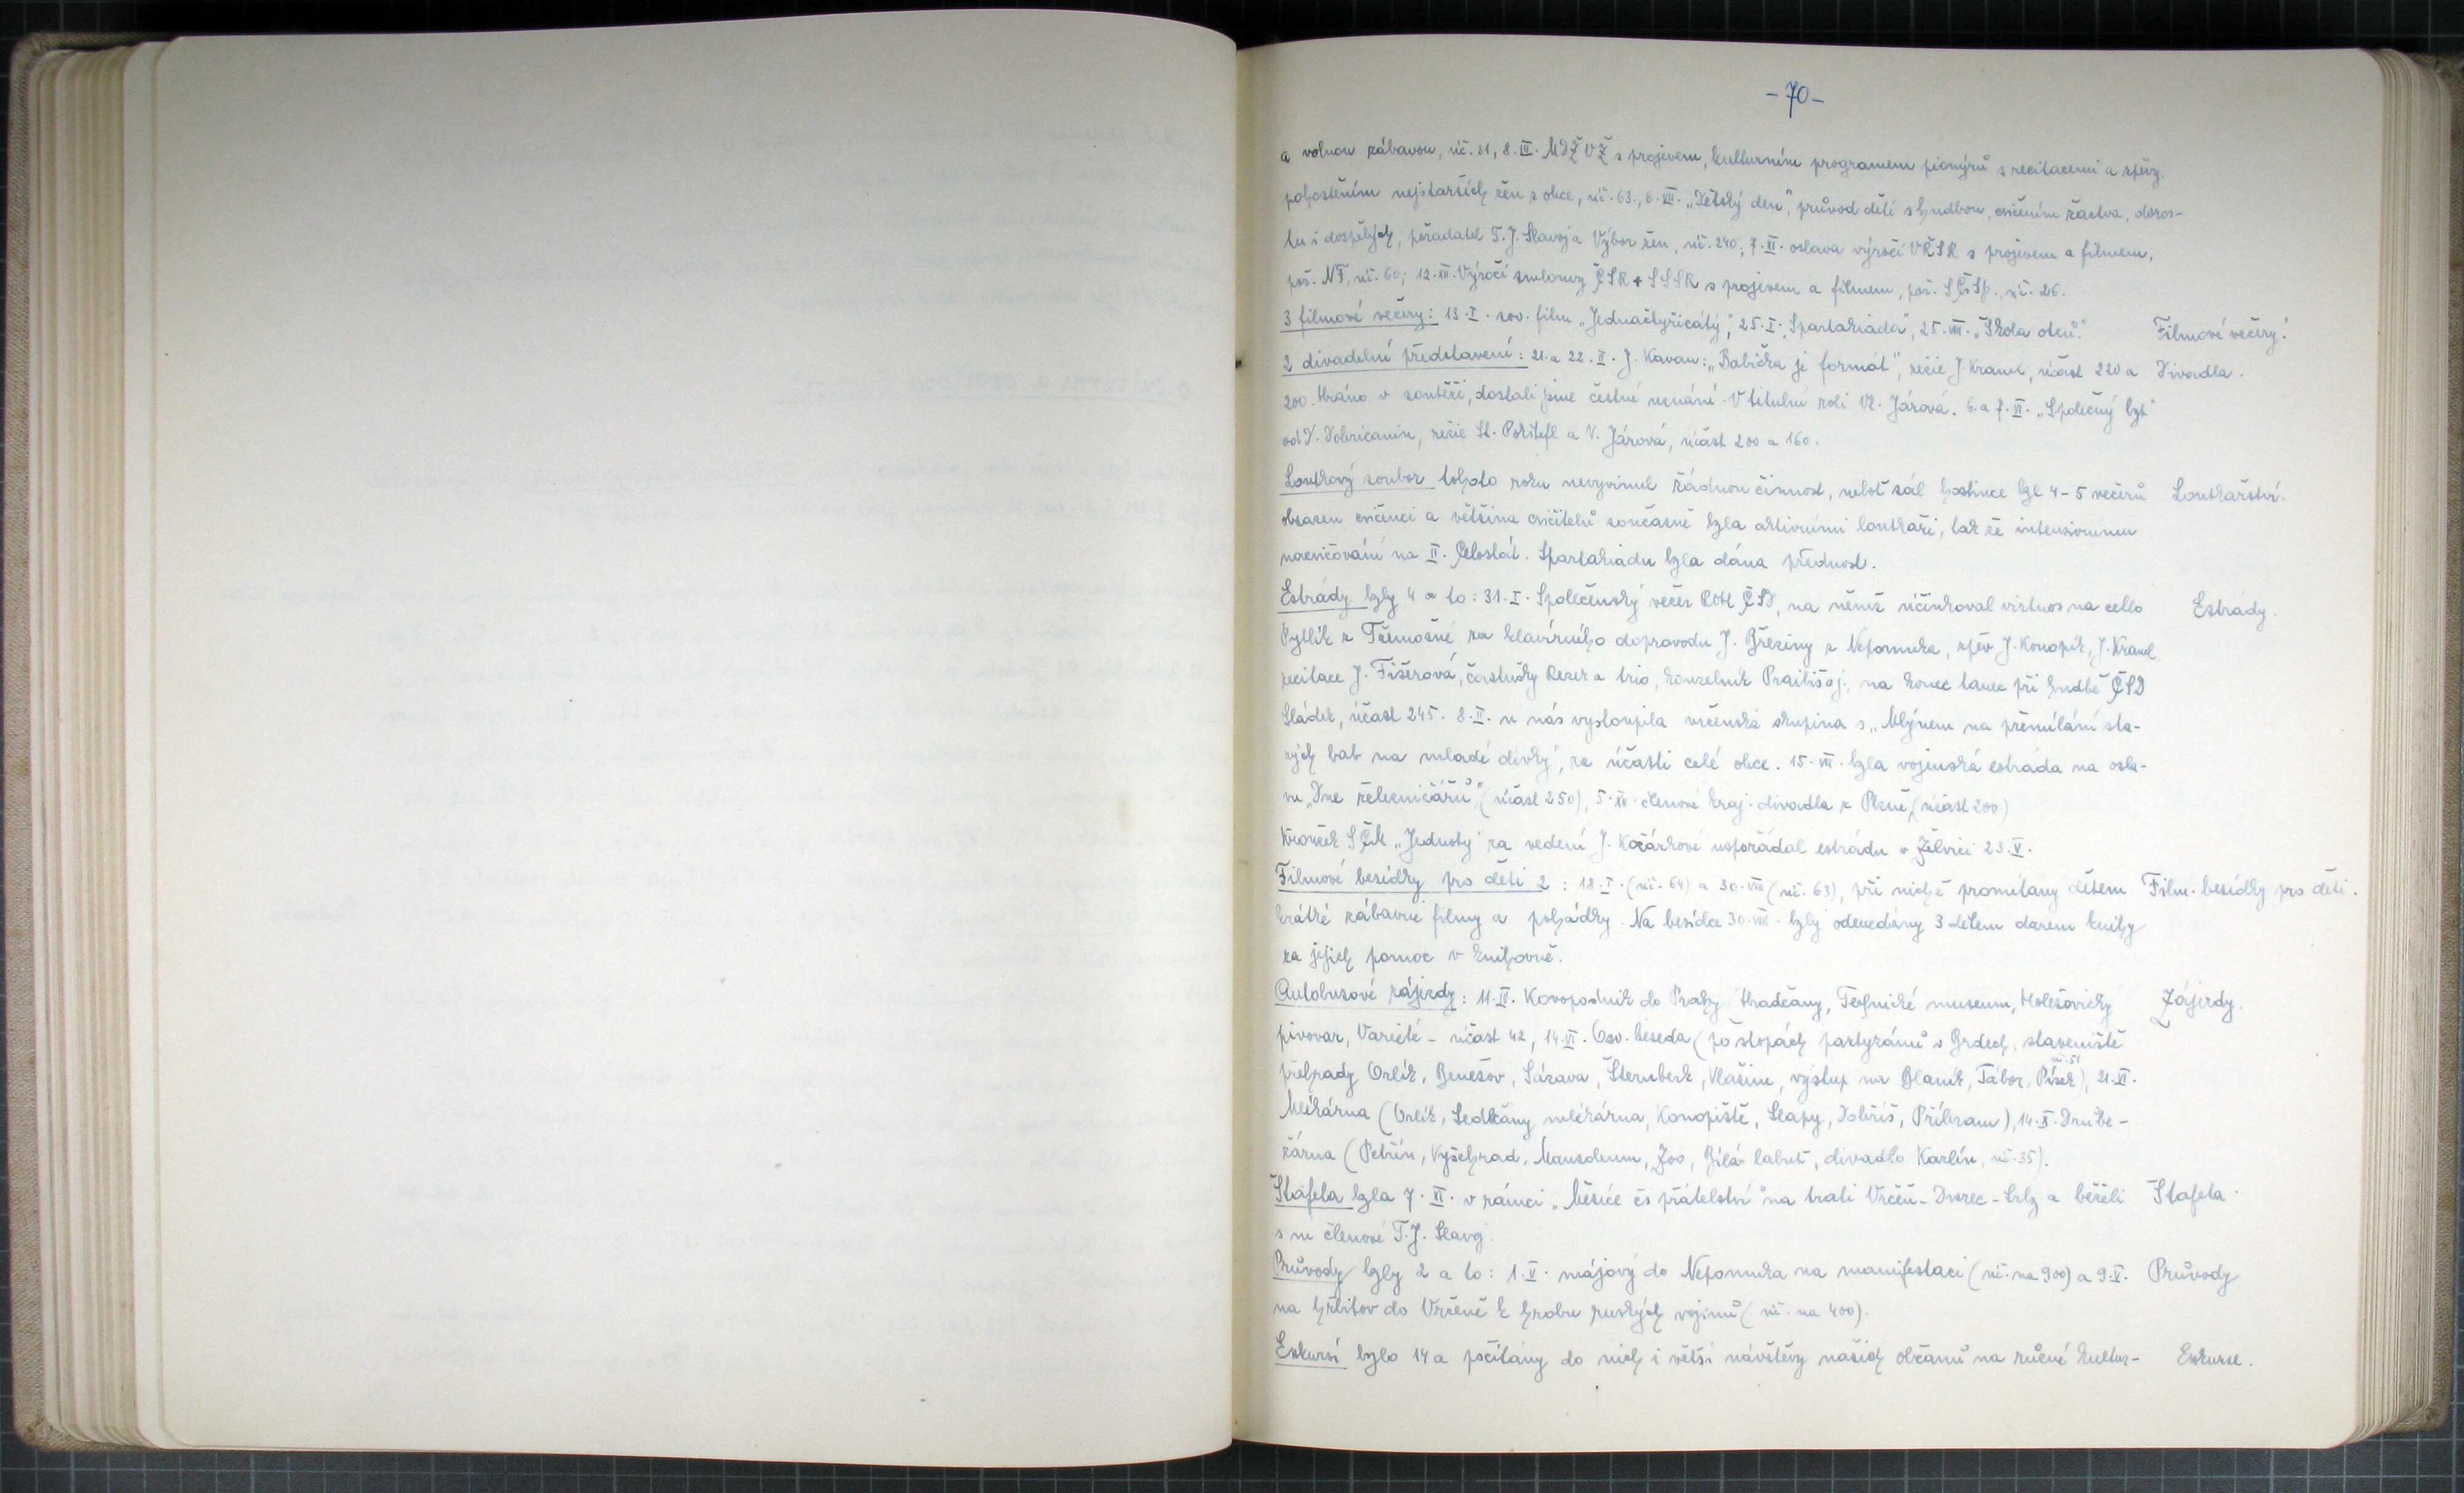 - 70 -
a volnou zábavou, úč. 21, 8.III. MDŽ VŽ s projevem, kulturním programem pionýrů s recitacemi a zpěvy,
pohoštěním nejstarších žen z obce, úč. 63., 6.VII. „Dětský den", průvod dětí s hudbou, cvičením žactva, doros-
tu i dospělých, pořadatel T.J. Slavoj a Výbor žen, úč. 240; 7.XI. oslava výročí VŘSR s projevem a filmem,
poř. NF, úč. 60; 12.XII. Výročí smlouvy ČSR + SSSR s projevem a filmem, poř. SČsSp., úč. 26.
3 filmové večery: 13.I. sov. film „Jednačtyřicátý", 25.I. „Spartakiáda", 25.III. „Škola otců." Filmové večery.
2 divadelní představení: 21. a 22.II. J. Kavan: „Babička je formát", režie J. Kraml, účast 220 a Divadla.
200. Hráno v soutěži, dostali jsme čestné uznání. V titulní roli Vl. Járová. 6. a 7.VI. „Společný byt"
od D. Dobričanin, režie St. a V. Járová, účast 200 a 160.
Loutkový soubor tohoto roku nevyvinul žádnou činnost, neboť sál hostince byl 4-5 večerů Loutkářství.
obsazen cvičenci a většina cvičitelů současně byla aktivními loutkáři, tak že intensivnímu
nacvičování na II. Celostát. Spartakiádu byla dána přednost.
Estrády byly 4 a to: 31.I. Společenský večer ROH ČSD, na němž účinkoval virtuos na cello Estrády.
Pytlík z Třemošné za klavírního doprovodu J. Březiny z Nepomuka, zpěv J. Konopík, J. Kraml
recitace J. Fišerová, častušky Rezek a trio, kouzelník Praibiš aj., na konec tanec při hudbě ČSD
Sládek, účast 245. 8.II. u nás vystoupila vrčenská skupina s „Mlýnem na přemílání sta-
rých bab na mladé dívky", za účasti celé obce. 15.III. byla vojenská estráda na osla-
vu „Dne železničářů" (účast 250), 5.XII. členové kraj. divadla z Plzně, (účast 200.)
Kroužek SČM „Jednoty" za vedení J. Kožárkové uspořádal estrádu v Želvici 23.V.
Filmové besídky pro děti 2: 18.I. (úč. 64) a 30.VIII (úč. 63), při nichž promítány dětem Film. besídky pro děti.
krátké zábavné filmy a pohádky. Na besídce 30.VIII. byly odevzdány 3 dětem darem knihy
za jejich pomoc v knihovně.
Autobusové zájezdy: 11.IV. Kovopodnik do Prahy (Hradčany, Technické museum, Holešovický Zájezdy.
pivovar, Varieté - účast 42, 14.VI. Osv. beseda (po stopách partyzánů v Brdech, staveniště
přehrady Orlík, Benešov, Sázava, Šternberk, Vlašim, výstup na Blaník, Tábor, Písek) úč. 51, 21.VI.
Mlékárna (Orlík, Sedlčany mlékárna, Konopiště, Slapy, Dobříš, Příbram), 14.X. Drůbe-
žárna (Petřín, Vyšehrad, Mauzoleum, Zoo, Bílá labuť, divadlo Karlín, úč. 35).
Štafeta byla 7.XI. v rámci „Měsíce čs přátelství" na trati Vrčeň - Dvorec - Srby a běželi Štafeta.
s ní členové T.J. Slavoj.
Průvody byly 2 a to: 1.V. májový do Nepomuka na manifestaci (úč. na 900) a 9.V. Průvody
na hřbitov do Vrčeně k hrobu ruských vojínů (úč. na 400).
Exkursí bylo 14 a počítány do nich i větší návštěvy našich občanů na různé kultur- Exkurse.